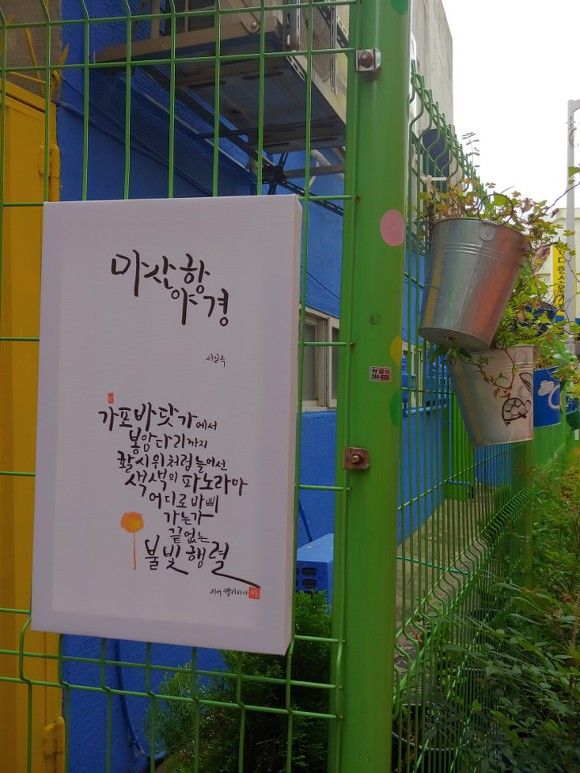 마산항
야경
가포바닷가에서
봉암다리까지
활시위처럼 늘어선
색색의 파노라마
어디로 바삐
가는가
끝없는
불빛 행렬